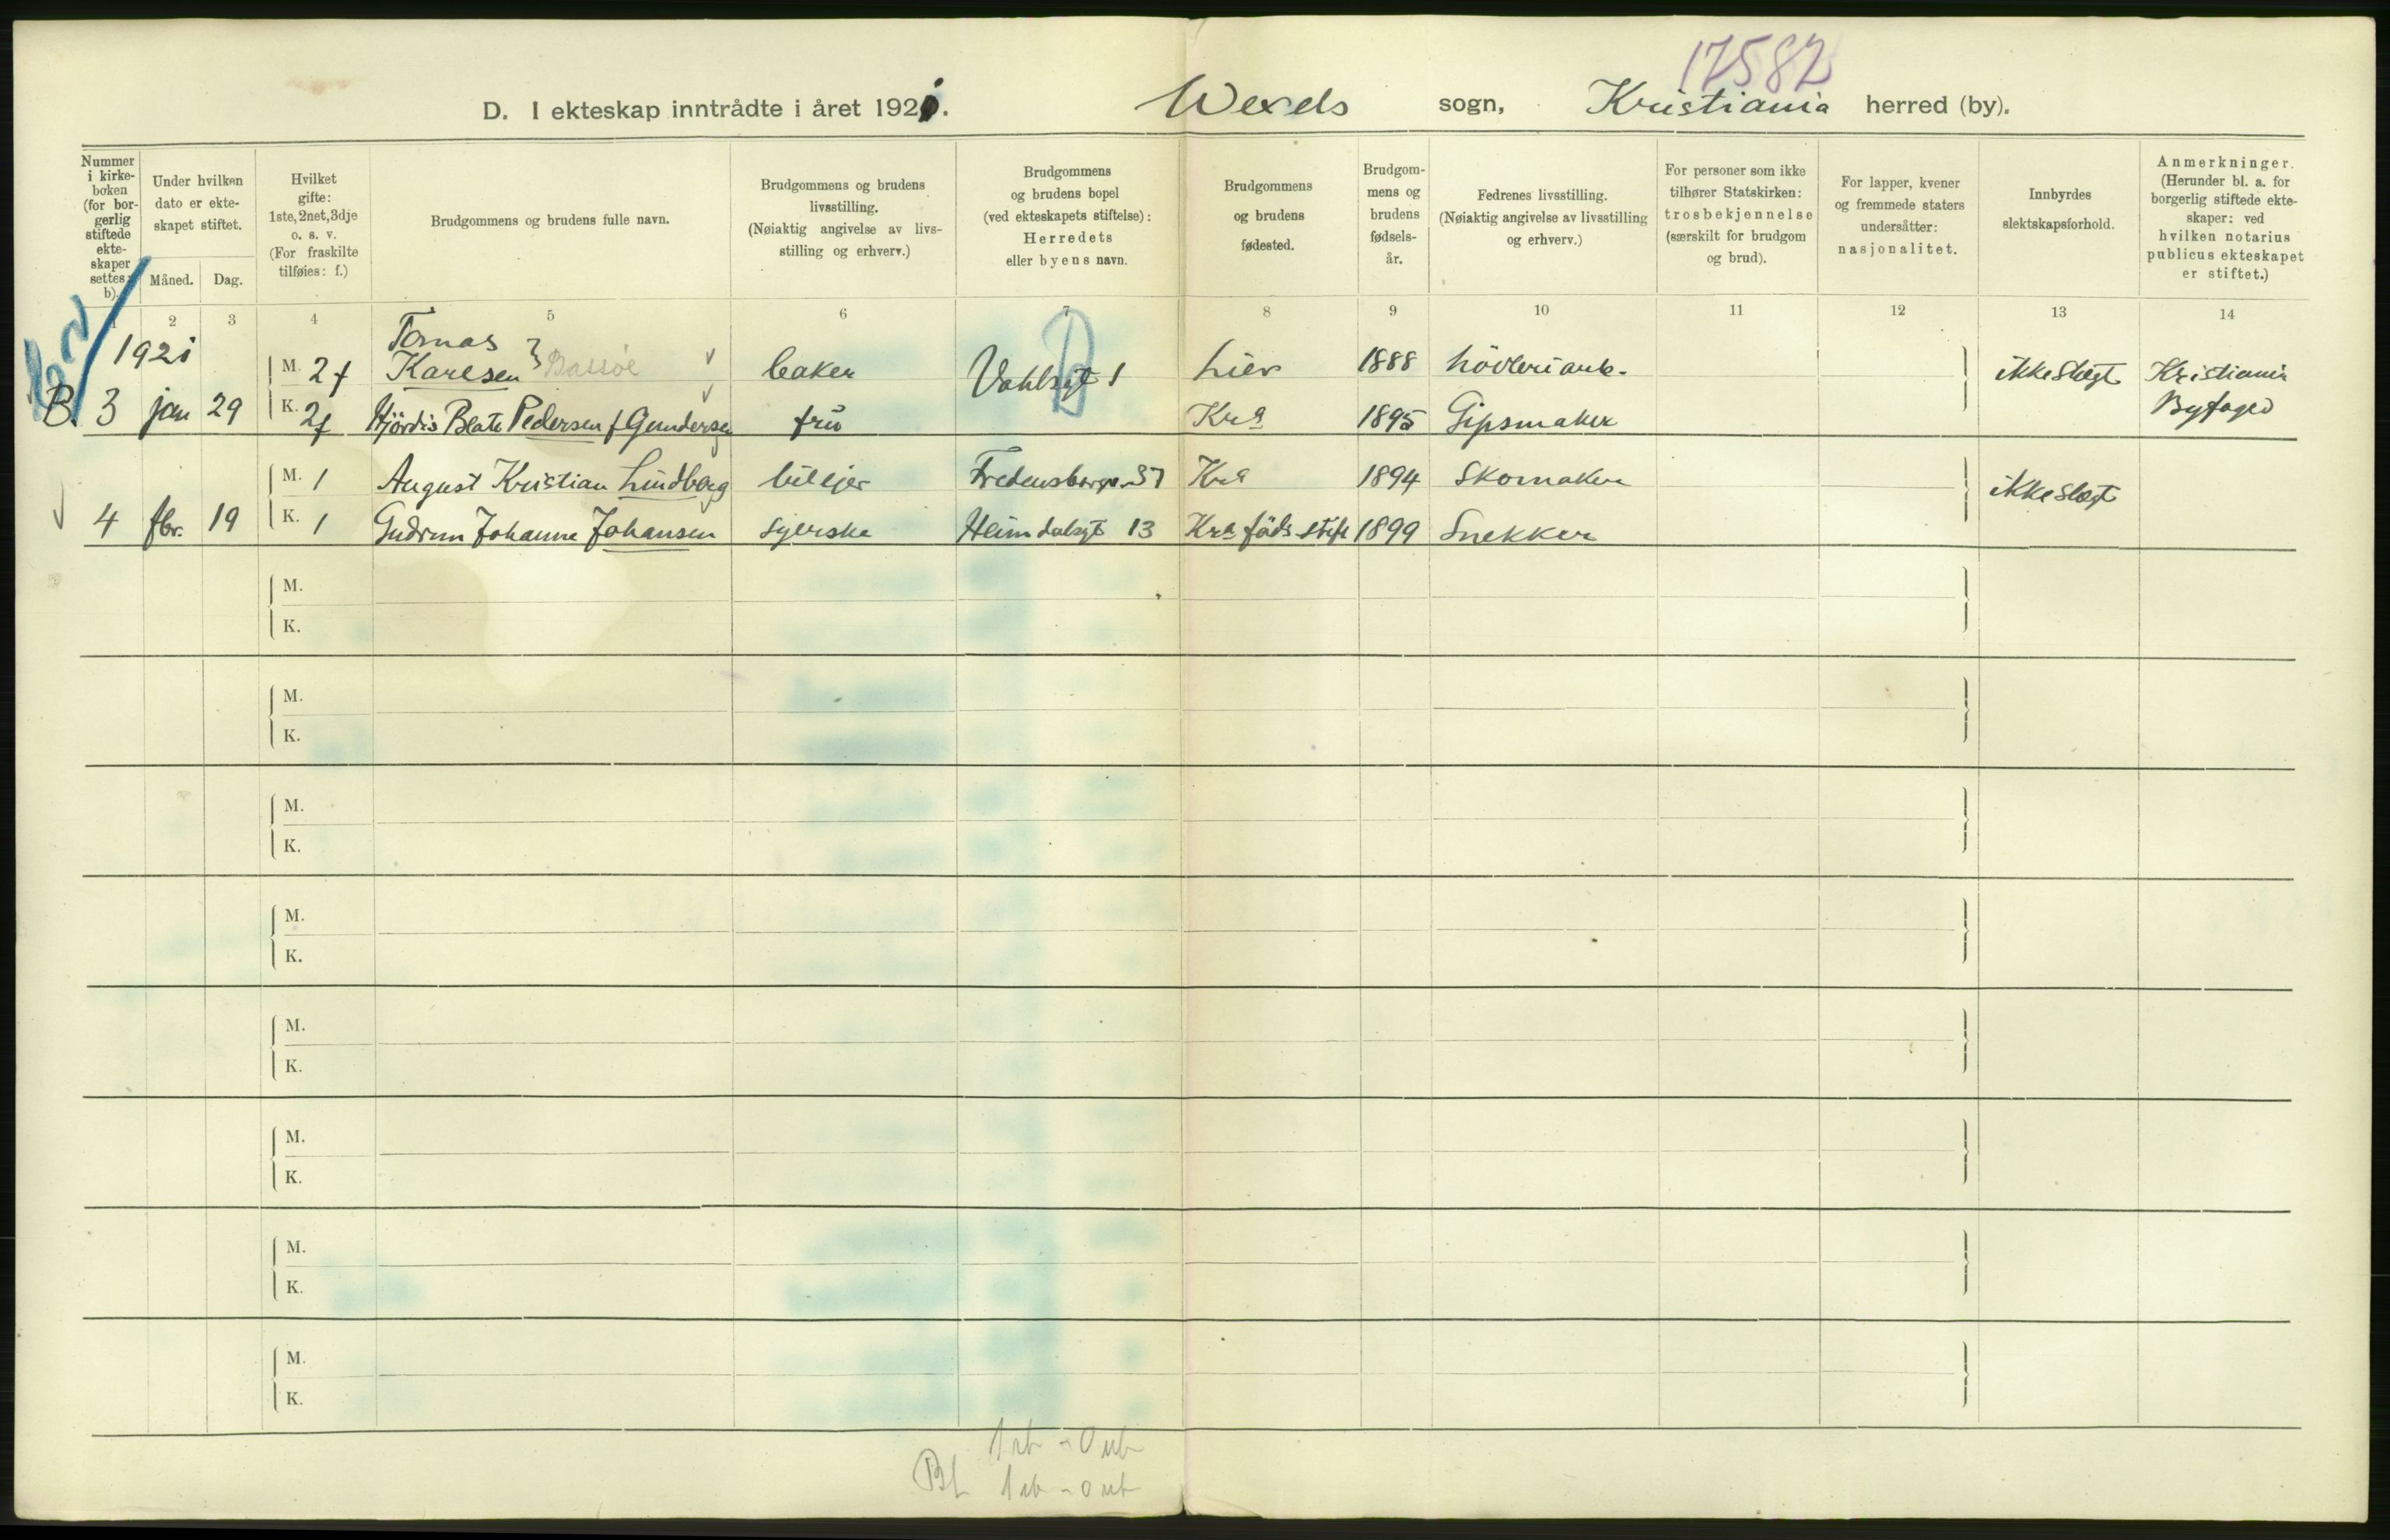 17582
D. I ekteskap inntrådte i året 1921. Wexels sogn, Kristiania herred (by).
Nummer i kirkeboken (for borgerlig stiftede ekteskaper settes: b).
Under hvilken dato er ekteskapet stiftet.
Måned. Dag.
Hvilket gifte: 1ste, 2net, 3dje o. s. v. (For fraskilte tilføies: f.)
Brudgommens og brudens fulle navn.
Brudgommens og brudens livsstilling. (Nøiaktig angivelse av livsstilling og erhverv.)
Brudgommens og brudens bopel (ved ekteskapets stiftelse): Herredets eller byens navn.
Brudgommens og brudens fødested.
Brudgommens og brudens fødselsår.
Fedrenes livsstilling. (Nøiaktig angivelse av livsstilling og erhverv.)
For personer som ikke tilhører Statskirken: trosbekjennelse (særskilt for brudgom og brud).
For lapper, kvener og fremmede staters undersåtter: nasjonalitet.
Innbyrdes slektskapsforhold.
Anmerkninger. (Herunder bl. a. for borgerlig stiftede ekteskaper: ved hvilken notarius publicus ekteskapet er stiftet.)
1 2 3 4 5 6 7 8 9 10 11 12 13 14
1921
Tomas
M. 2f Karlsen Bassøe baker Vahlsgt 1 Lier 1888 hövleriarb. ikke slegt Kristiania
B. 3 jan 29 K. 2f Hjördis Beate Pedersen f Gundersen frü Kra 1895 Gipsmaker Byfoged
M. 1 August Kristian Lindberg bilejer Fredensborgv. 37 Kra 1894 Skomaker ikke slegt
4 fbr. 19 K. 1 Gudrun Johanne Johansen syerske Heimdalsgt 13 Kra föds.stift 1899 Snekker
M.
K.
M.
K.
M.
K.
M.
K.
M.
K.
M.
K.
M.
K.
M.
K.